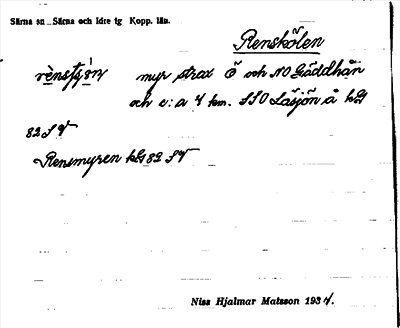 Särna sn   Särna och Idre tg   Kopp. län.
Renskölen
myr strax Ö och NO Gäddhån
och c:a 4 km. SSO Läsjön å kbl
82 SV
Rensmyren kbl 82 SV
Niss Hjalmar Matsson 1934.